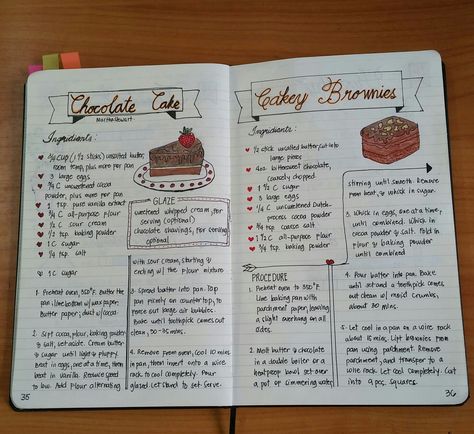 Chocolate Cake
Martha Stewart
Ingredients:
3/4 cup (1 1/2 sticks) unsalted butter,
room temp, plus more for pan
3 large eggs
3/4 C unsweetened cocoa
powder, plus more for pan
1 tsp pure vanilla extract
3/4 C all-purpose flour
1/2 C sour cream
1/2 tsp baking powder
1 C sugar
1/4 tsp salt
1 C sugar
GLAZE
sweetened whipped cream, for
serving (optional)
chocolate shavings, for serving
(optional)
1. Prevent oven, 350°F. Butter the
pan; line bottom w/ wax paper.
Butter paper; dust w/ cocoa
2. Sift cocoa, flour, baking powder
& salt, set aside. Cream butter
& sugar until light & fluffy.
Beat in eggs, one at a time, then
beat in vanilla. Reduce speed
to low. Add flour alternating
with sour cream, starting &
ending w/ the flour mixture
3. Spread batter into pan. Tap
pan firmly on counter top, to
force out large air bubbles.
Bake until toothpick comes out
clean, 30-35 mins.
4. Remove from oven, cool 10 mins
in pan, then invert onto a wire
rack to cool completely. Pour
glaze. Let stand to set. Serve.
35
Cakey Brownies
Ingredients:
1/2 stick unsalted butter, cut into
large pieces
4oz bittersweet chocolate,
coarsely chopped
1 1/2 C sugar
3 large eggs
1/4 C unsweetened Dutch-
process cocoa powder
3/4 tsp coarse salt
1 1/2 C all-purpose flour
3/4 tsp baking powder
PROCEDURE
1. Preheat oven to 350°F.
Line baking pan with
parchment paper, leaving
a slight overhang on all
sides.
2. Melt butter & chocolate
in a double boiler or a
heatproof bowl set over
a pot of simmering water
stirring until smooth. Remove
from heat, & whisk in sugar.
3. Whisk in eggs, one at a time,
until combined. Whisk in
cocoa powder & salt. Fold in
flour & baking powder
until combined
4. Pour batter into pan. Bake
until set and a toothpick comes
out clean w/ moist crumbs,
about 30 mins.
5. Let cool in pan on a wire rack
about 15 mins. Lift brownies from
pan using parchment. Remove
parchment, and transfer to a
wire rack. Let cool completely. Cut
into 9 pcs. squares.
36